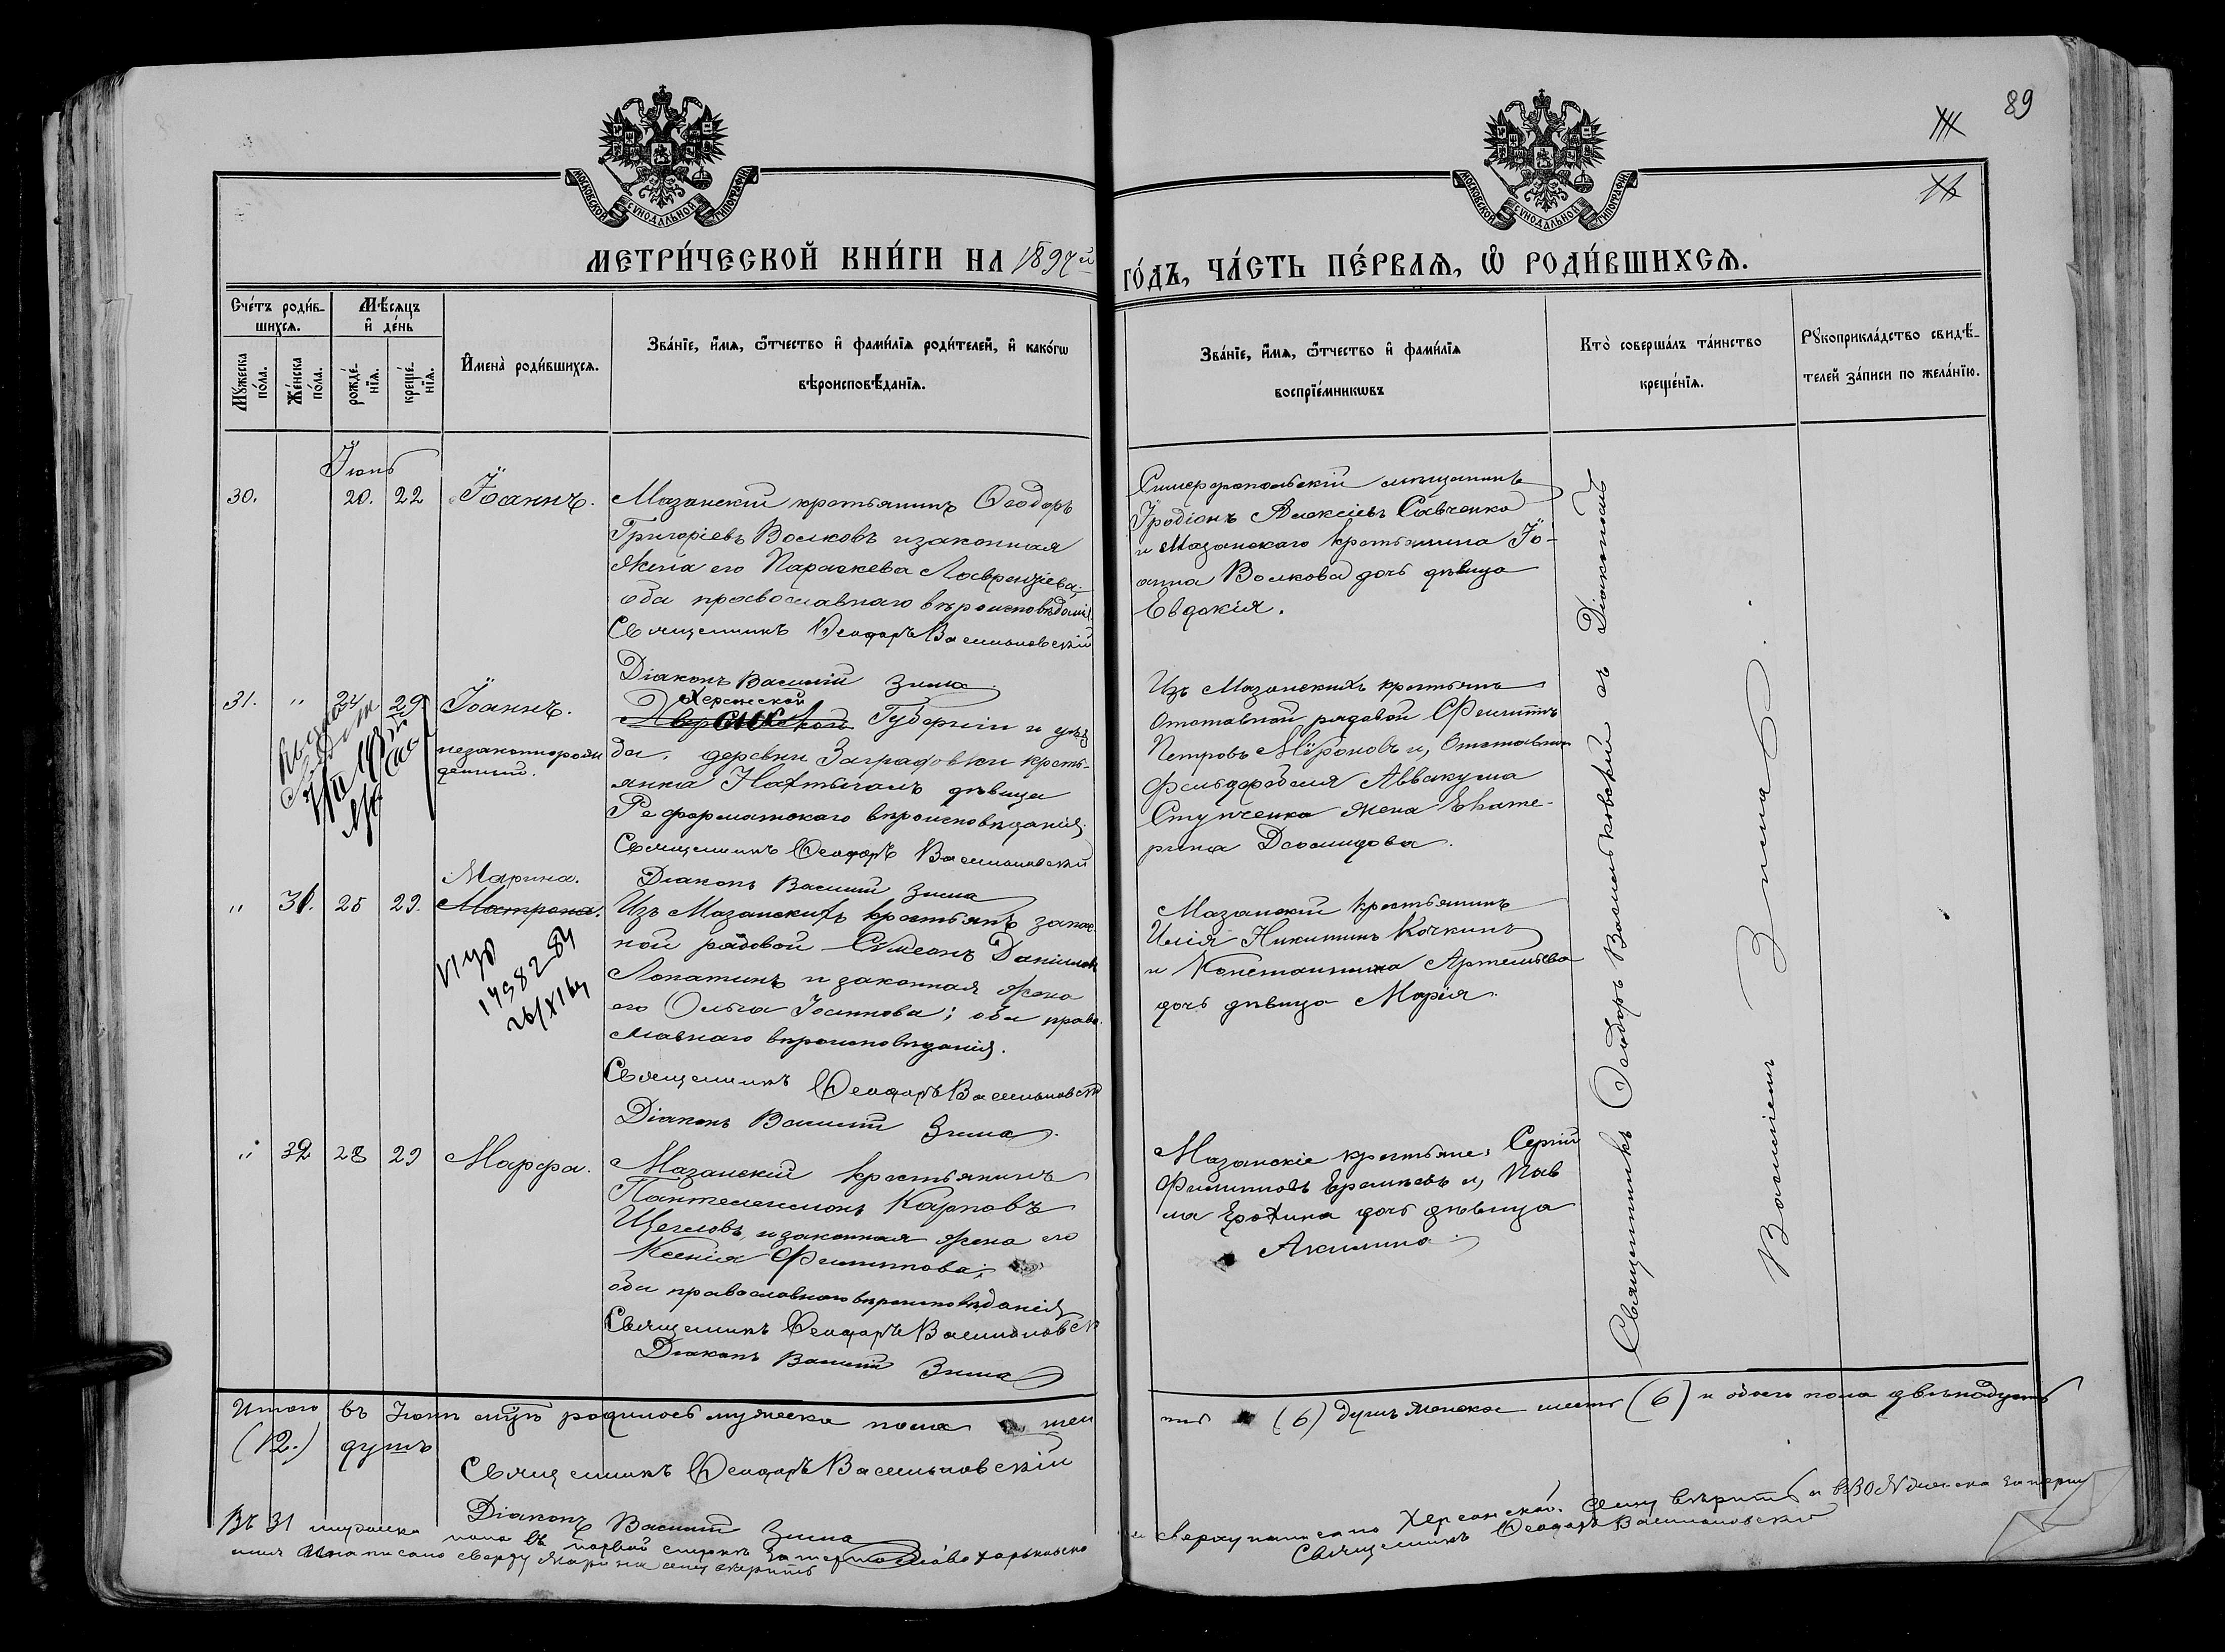 89
МОСКОВСКОЙ СУНОДАЛЬНОЙ ТИПОГРАФІИ
МОСКОВСКОЙ СУНОДАЛЬНОЙ ТИПОГРАФІИ
МЕТРИ́ЧЕСКОЙ КНИ́ГИ НА 1897й
ГО́ДЪ, ЧА́СТЬ ПЕ́РВАѦ, Ѡ РОДИ́ВШИХСѦ.
Сче́тъ роди́в-
шихсѧ.
Мѣ́сѧцъ
и҆ де́нь
Мꙋжеска по́ла.
Же́нска по́ла.
рожде́-
нїѧ.
креще́-
нїѧ.
И҆мена̀ роди́вшихсѧ.
Зва́нїе, и҆́мѧ, ѻ҆́тчество и҆ фами́лїѧ роди́телей, и҆ како́гѡ
вѣроисповѣ́данїѧ.
Зва́нїе, и҆́мѧ, ѻ҆́тчество и҆ фами́лїѧ
воспрїе́мникѡвъ
Кто̀ соверша́лъ та́инство
креще́нїѧ.
Рꙋкоприкла́дство свидѣ́-
телей за́писи по жела́нїю.
Іюнь
30.
20.
22
Іоаннъ.
Мазанскій крестьянинъ Ѳеодоръ
Григоріевъ Волковъ и законная
жена его Параскева Лаврентіева
оба православнаго вѣроисповѣданія
Священникъ Ѳеодоръ Васильковскій
Діаконъ Василій Зима
Симферопольскій мѣщанинъ
Іродіонъ Алексіевъ Савченко
и Мазанскаго крестьянина Іо-
анна Волкова дочь дѣвица
Евдокія.
31.
"
24
29
Іоаннъ.
незаконнорож
денный.
Херсонской
Губерніи и уѣз
да, деревни Заградовки кресть-
янка дѣвица
Реформатскаго вѣроисповѣданія
Священникъ Ѳеодоръ Васильковскій
Діаконъ Василій Зима
Изъ Мазанскихъ крестьянъ
Отставной рядовой Филиппъ
Петровъ Мѵроновъ и, Отставнаго
фельдфебеля Аввакума
Ступченка жена Екате-
рина Діомидова.
Марина.
"
31.
25
29.
Матрона.
Изъ Мазанскихъ крестьянъ запас
ной рядовой Сѵмеонъ Даніиловъ
Лопатинъ и законная жена
его Ольга Іоаннова; оба право
славнаго вѣроисповѣданія.
Священникъ Ѳеодоръ Васильковскій
Діаконъ Василій Зима
Мазанскій крестьянинъ
Илія Никитинъ Кочкинъ
и Константина Артемьева
дочь дѣвица Марія.
"
32
28
29
Марфа.
Мазанскій крестьянинъ
Пантелеимонъ Карповъ
Щегловъ и законная жена его
Ксенія Филиппова;
оба православнаго вѣроисповѣданія
Священникъ Ѳеодоръ Васильковск
Діаконъ Василій Зима
Мазанскіе крестьяне: Сергій
Филипповъ и, Пав
ла дочь дѣвица
Акилина
Священникъ Ѳеодоръ Васильковскій съ Діакономъ
Василіемъ Зимаю.
Итого въ Іюнѣ мѣсяцѣ родилось мужеска пола шес
ть (6) душъ женска шесть (6) и обоего пола двѣнадцать
(12.) душъ
Священникъ Ѳеодоръ Васильковскій
Діаконъ Василій Зима
Въ 31 мужеска пола въ первой строкѣ слово
и сверху написано Херсонской. Сему вѣрить
написано сверху Марина сему вѣрить
Священникъ Ѳеодоръ Васильковскій